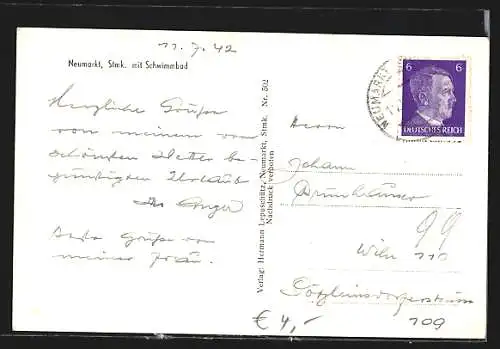 11.7.42
Neumarkt, Stmk. mit Schwimmbad
Herzliche Grüße
von meinem vom
schönsten Wetter be-
günstigten Urlaub
Ihr
Beste Grüße von
meiner Frau.
Verlag: Hermann Lepuschütz, Neumarkt, Stmk. Nr. 502
Nachdruck verboten
NEUMARKT
6 6
DEUTSCHES REICH
Herrn
Johann
99
Wien 110
Pötzleinsdorferstrasse
109
€ 4,-